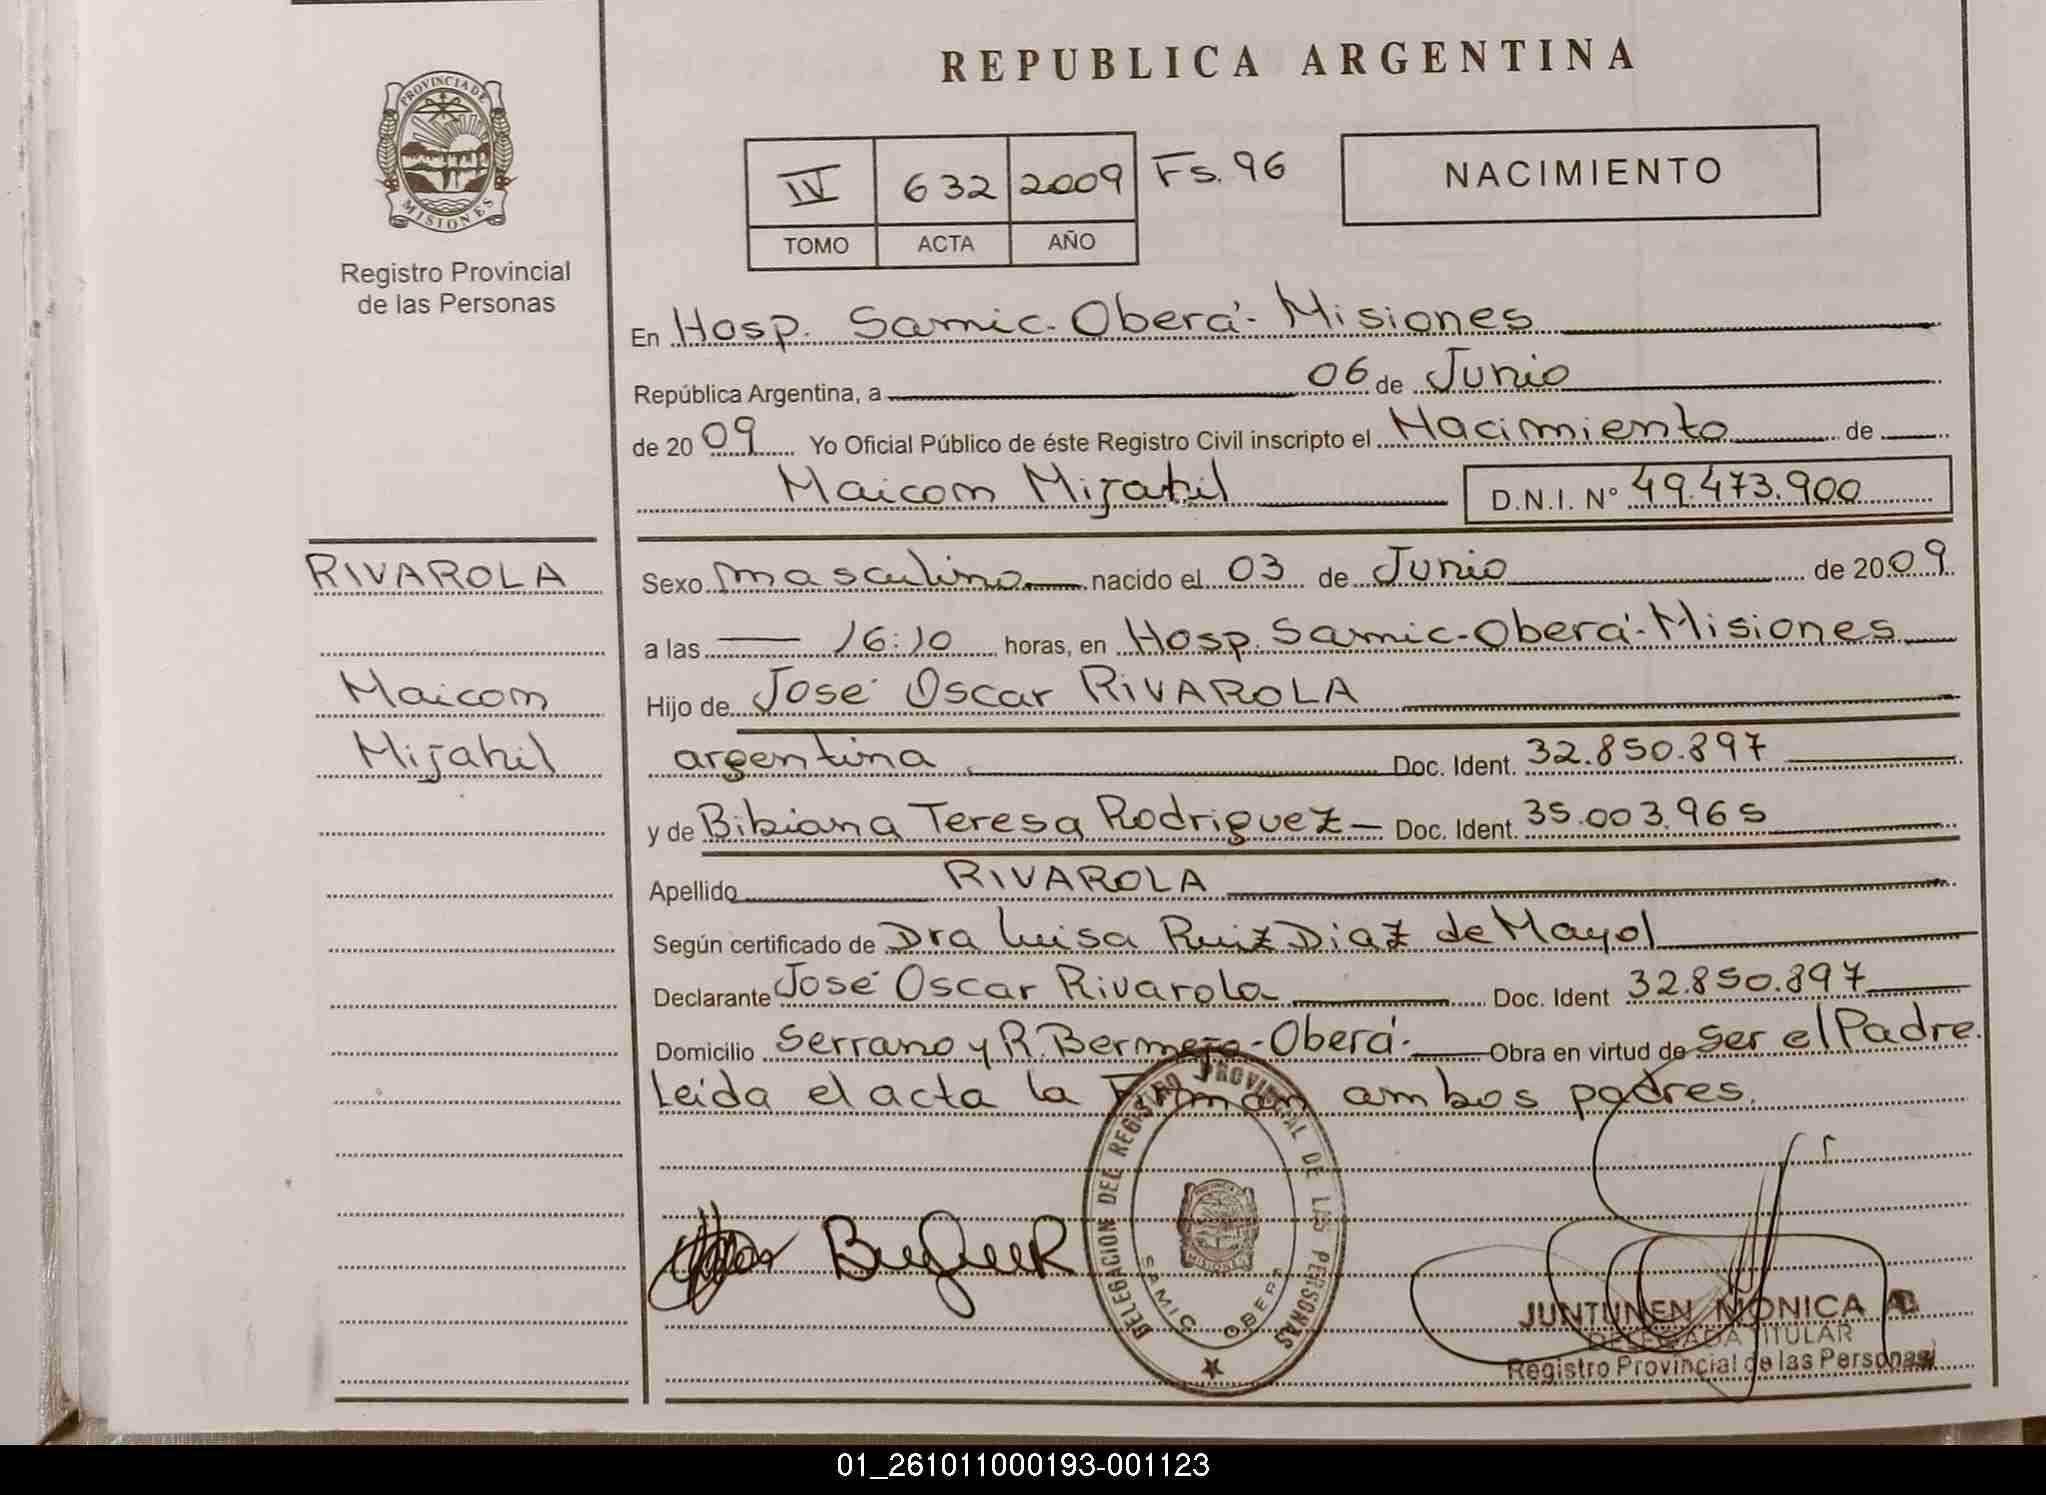 REPUBLICA ARGENTINA
PROVINCIA DE
MISIONES
Registro Provincial
de las Personas
IV 632 2009 Fs. 96
TOMO ACTA AÑO
NACIMIENTO
En Hosp. Samic - Oberá - Misiones
República Argentina, a 06 de Junio
de 2009 Yo Oficial Público de éste Registro Civil inscripto el Nacimiento de
Maicom Mijahil D.N.I. N° 49.473.900
RIVAROLA
Maicom
Mijahil
Sexo masculino nacido el 03 de Junio de 2009
a las 16:10 horas, en Hosp. Samic - Oberá - Misiones
Hijo de José Oscar RIVAROLA
argentina Doc. Ident. 32.850.897
y de Bibiana Teresa Rodriguez - Doc. Ident. 35.003.965
Apellido RIVAROLA
Según certificado de Dra Luisa Ruiz Diaz de Mayol
Declarante José Oscar Rivarola Doc. Ident 32.850.897
Domicilio Serrano y R. Bermejo - Oberá - Obra en virtud de Ser el Padre.
Leída el acta la Firman ambos padres.
DELEGACION DEL REGISTRO PROVINCIAL DE LAS PERSONAS
SAMIC OBERA
MISIONES
JUNTUNEN MONICA
DELEGADA TITULAR
Registro Provincial de las Personas
01_261011000193-001123